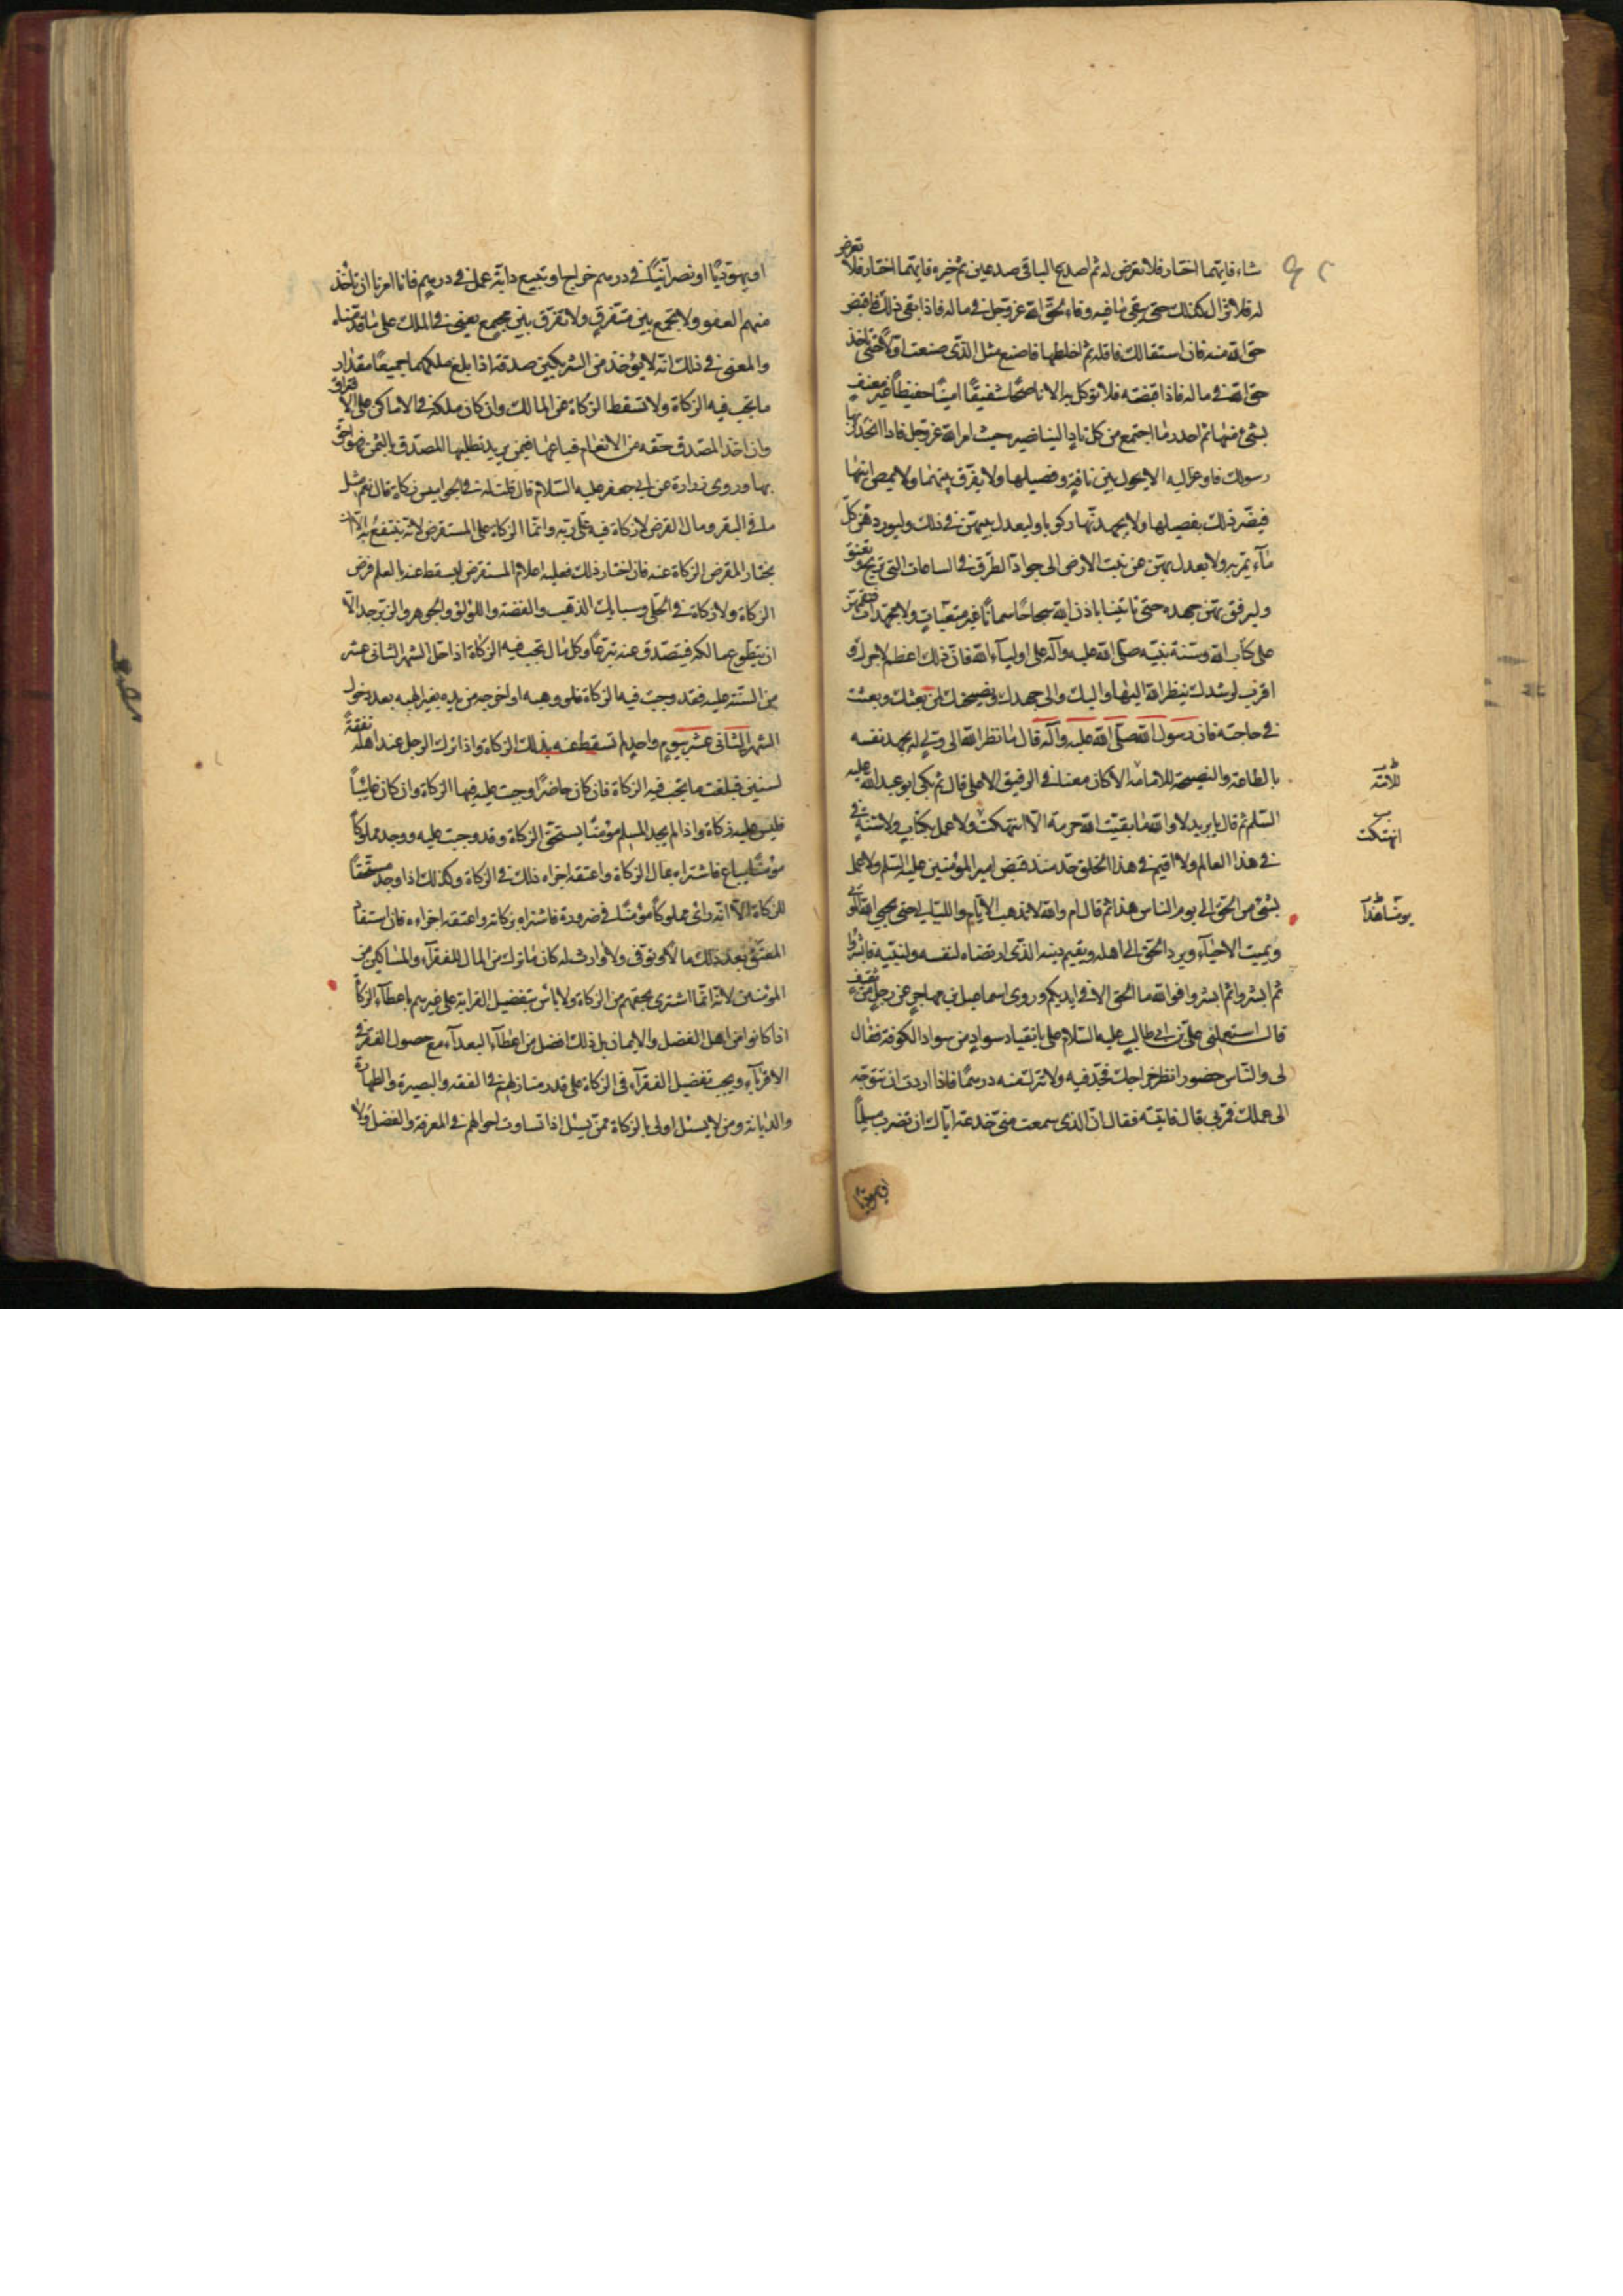 شاء فايّتهما اختار فلا تعرض له ثم اصدع الباقى صدعين ثم خيره فايّتهما اختار فلا تعرض
له فلا تزال كذلك حتى يبقى ما فيه وفاء لحقّ الله عزّ وجل فى ماله فاذا بقى ذلك فاقبض
حق الله منه فان استقالك فاقله ثم اخلطها فاصنع مثل الذى صنعت اولاً حتى تاخذ
حق الله فى ماله فاذا قبضته فلا توكل به الا ناصحًا شفيقًا امينًا حفيظًا غير معنف
بشئ منها ثم احدر ما اجتمع من كل ناد الينا نصيره حيث امر الله عز وجل فاذا انحدر بها
رسولك فاوعز اليه الا يحول بين ناقة وفصيلها ولا يفرّق بينهما ولا يمصر لبنها
فيضر ذلك بفصيلها ولا يجهد نّها ركوبا وليعدل بينهن فى ذلك وليوردهن كلّ
ماء يمر به ولا يعدل بهن عن نبت الارض الى جوادّ الطرق فى الساعات التى تريح وتعنق
وليرفق بهن جهده حتى تاتينا باذن الله سحاحًا سمانًا غير متعبات ولا مجهدات فنقسمهن
على كتاب الله وسنة نبيّه صلى الله عليه وآله على اولياء الله فان ذلك اعظم لاجرك و
اقرب لرشدك ينظر الله اليها واليك والى جهدك ونصيحتك لمن بعثك وبعثت
فى حاجته فان رسول الله صلّى الله عليه وآله قال ما نظر الله الى ولىّ له يجهد نفسه
بالطاعة والنصيحة للامامه الا كان معنا فى الرفيق الاعلى قال ثم بكى ابو عبد الله عليه
للامّة
السّلم ثم قال يا بريد لا والله ما بقيت لله حرمة الا انتهكت ولا عمل بكتاب ولا سنة فى
انتهكت
فى هذا العالم ولا اقيم فى هذا الخلق حدّ منذ قبض امير المؤمنين عليه السّلم ولا عمل
بشئ من الحق الى يوم الناس هذا ثم قال ام والله لا يذهب الايّام والليالى حتى يحيى الله الموتى
يومنا هذا
ويميت الاحياء ويرد الحق الى اهله ويقيم دينه الذى ارتضاه لنفسه ولنبيّه فابشروا
ثم ابشروا ثم ابشروا فوالله ما الحق الا فى ايديكم وروى اسماعيل بن مهاجر عن رجل من ثقيف
قال استعملنى علىّ بن ابى طالب عليه السّلام على بانقيا وسواد من سواد الكوفة فقال
لى والنّاس حضور انظر خراجك فجدّ فيه ولا تترك منه درهمًا فاذا اردت ان تتوجّه
الى عملك فمرّ بى قال فاتيته فقال انّ الذى سمعت منى خدعة ايّاك ان تضرب مسلمًا
او يهوديّا
او يهوديًّا او نصرانيًّا فى درهم خراج او تبيع دابّة عمل فى درهم فانا امرنا ان ناخذ
منهم العفو ولا يجمع بين متفرق ولا تفرق بين مجتمع يعنى فى الملك على ما قدمناه
والمعنى فى ذلك انّه لا يؤخذ من الشريكين صدقة اذا بلغ ملكهما جميعًا مقدار
ما تجب فيه الزكاة ولا تسقط الزكاة عن المالك وان كان ملكه فى الاماكن على الافتراق
وان اخذ المصدق حقه من الانعام فباعها فيمن يريد فطلبها المصدق بالثمن فهو احق
بها وروى زرارة عن ابى جعفر عليه السّلام قال قلت له فى الجواميس زكاة قال نعم مثل
ما فى البقر ومال القرض لا زكاة فيه على ربّه وانّما الزكاة على المستقرض لانّه ينتفع به الّا ان
يختار المقرض الزكاة عنه فان اختار ذلك فعليه اعلام المستقرض ليسقط عنه بالعلم فرض
الزكاة ولا زكاة فى الحلى وسبايك الذهب والفضة واللؤلؤ والجوهر والزبرجد الّا
ان يتطوع مالكه فيتصدق عنه تبرعًا وكل مال تجب فيه الزكاة اذا حل الشهر الثانى عشر
من السّنة عليه فقد وجبت فيه الزكاة فلو وهبه او اخرجه من يده بغير الهبه بعد دخول
الشهر الثانى عشر بيوم واحد لم تسقط عنه بذلك الزكاة واذا ترك الرجل عند اهله نفقةً
لسنين فبلغت ما يجب فيه الزكاة فان كان حاضرًا وجبت عليه فيها الزكاة وان كان غائبًا
فليس عليه زكاة واذا لم يجد المسلم مؤمنًا يستحق الزكاة وقد وجبت عليه ووجد مملوكًا
مؤمنًا يباع فاشتراه بمال الزكاة واعتقه اجزاه ذلك فى الزكاة وكذلك اذا وجد مستحقًا
للزكاة الّا انه راى مملوكًا مؤمنًا فى ضرورة فاشتراه بزكاته واعتقه اجزاءه فان استفاد
المعتق بعد ذلك مالاً وتوفى ولا وارث له كان ما ترك من المال للفقرآء والمساكين من
المؤمنين لانّه انّما اشترى بحقهم من الزكاة ولا باس بتفضيل القرابة على غيرهم باعطاء الزكاة
اذا كانوا من اهل الفضل والايمان بل ذلك افضل من اعطاء البعدآء مع حصول الفقر فى
الاقرباء ويجب تفضيل الفقرآء فى الزكاة على قدر منازلهم فى الفقه والبصيرة والطهارة
والديانة ومن لا يسئل اولى بالزكاة ممن يسئل اذا تساوت احوالهم فى المعرفة والفضل ولا